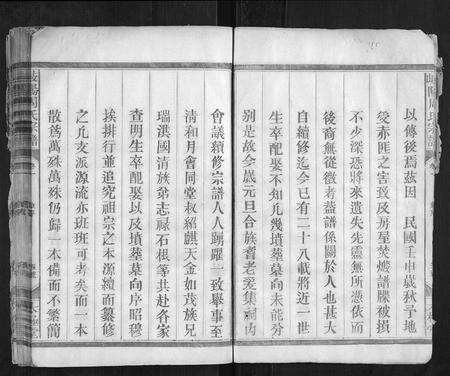 以傳後焉茲因 民國壬申歲秋予地
受赤匪之害致及房屋焚燬譜牒被損
不少深恐將來遺失先靈無所憑依而
後裔無從徵考蓋譜係關於人也甚大
自續修迄今已有二十八載將近一世
生卒配娶不知凡幾墳塋墓向未能分
別是故今歲元旦合族耆老爰集祠內
岐陽周氏宗譜
會議續修宗譜人人踴躍一致舉事至
清和月會同堂叔紹麒天金如茂族兄
瑞淇國清族弟志尿石根等共赴各家
查明生卒配娶以及墳塋墓向序昭穆
挨排行並追究祖宗之本源續而纂修
之凡支派源流亦班班可考矣而一本
散爲萬殊萬殊仍歸一本備而不繁簡
岐陽周氏宗譜